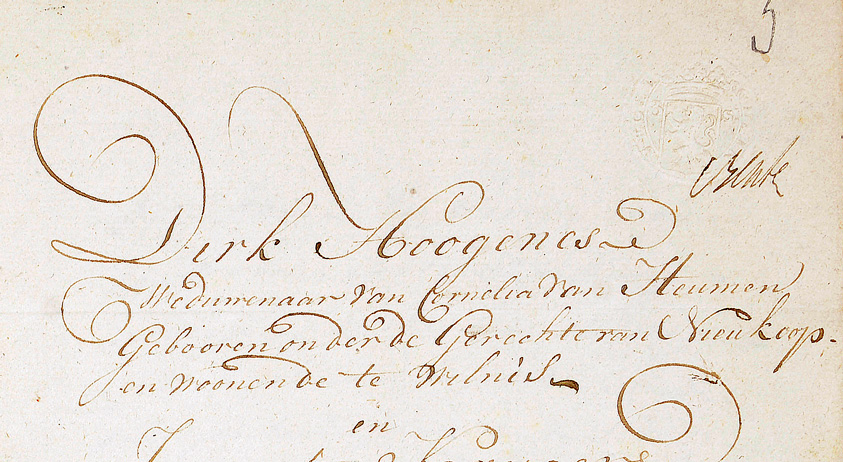 5
Dirk Hoogenes
Weduwenaar van Cornelia van Heumen
Gebooren onder de Gerechte van Nieukoop.
en woonende te Wilnis
en